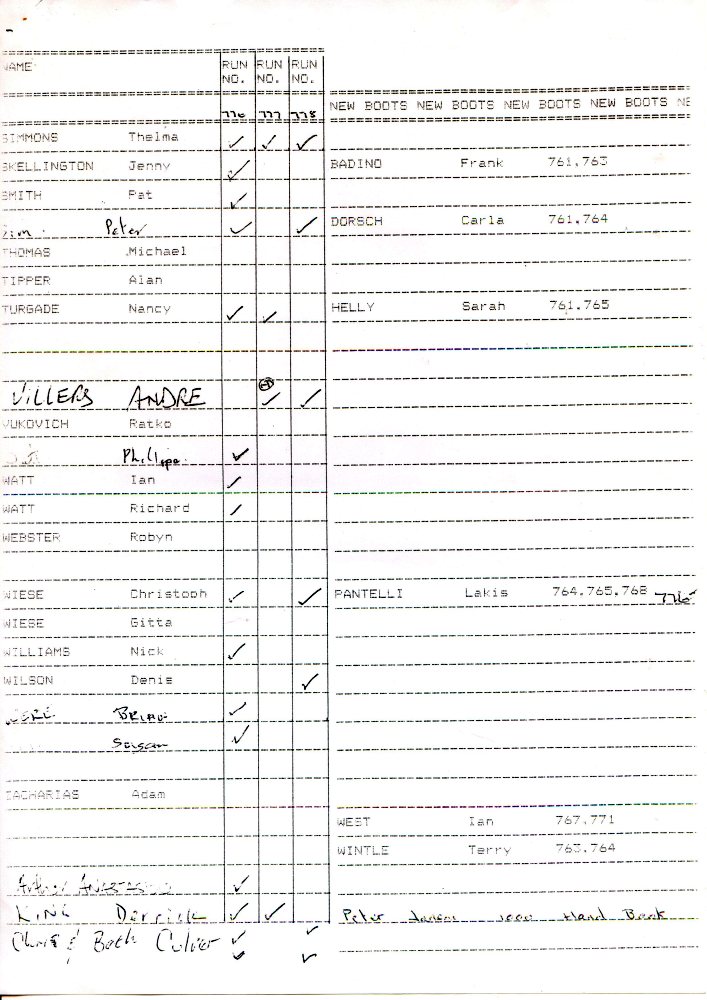 NAME RUN RUN RUN
NO. NO. NO.
NEW BOOTS NEW BOOTS NEW BOOTS NEW BOOTS NE
776 777 778
SIMMONS Thelma ✓ ✓ ✓
SKELLINGTON Jenny ✓ BADINO Frank 761,763
SMITH Pat ✓
Peter ✓ ✓ DORSCH Carla 761,764
THOMAS Michael
TIPPER Alan
TURGADE Nancy ✓ ✓ HELLY Sarah 761,765
VILLERS ANDRE ✓ ✓
VUKOVICH Ratko
Phillipa ✓
WATT Ian ✓
WATT Richard ✓
WEBSTER Robyn
WIESE Christoph ✓ ✓ PANTELLI Lakis 764,765,768
WIESE Gitta
WILLIAMS Nick ✓
WILSON Denis ✓
BRIAN ✓
Susan ✓
ZACHARIAS Adam
WEST Ian 767,771
WINTLE Terry 763,764
Arthur ✓
KING Derrick ✓ ✓ Peter Hand Book
Chris & Beth Culver ✓ ✓
✓ ✓